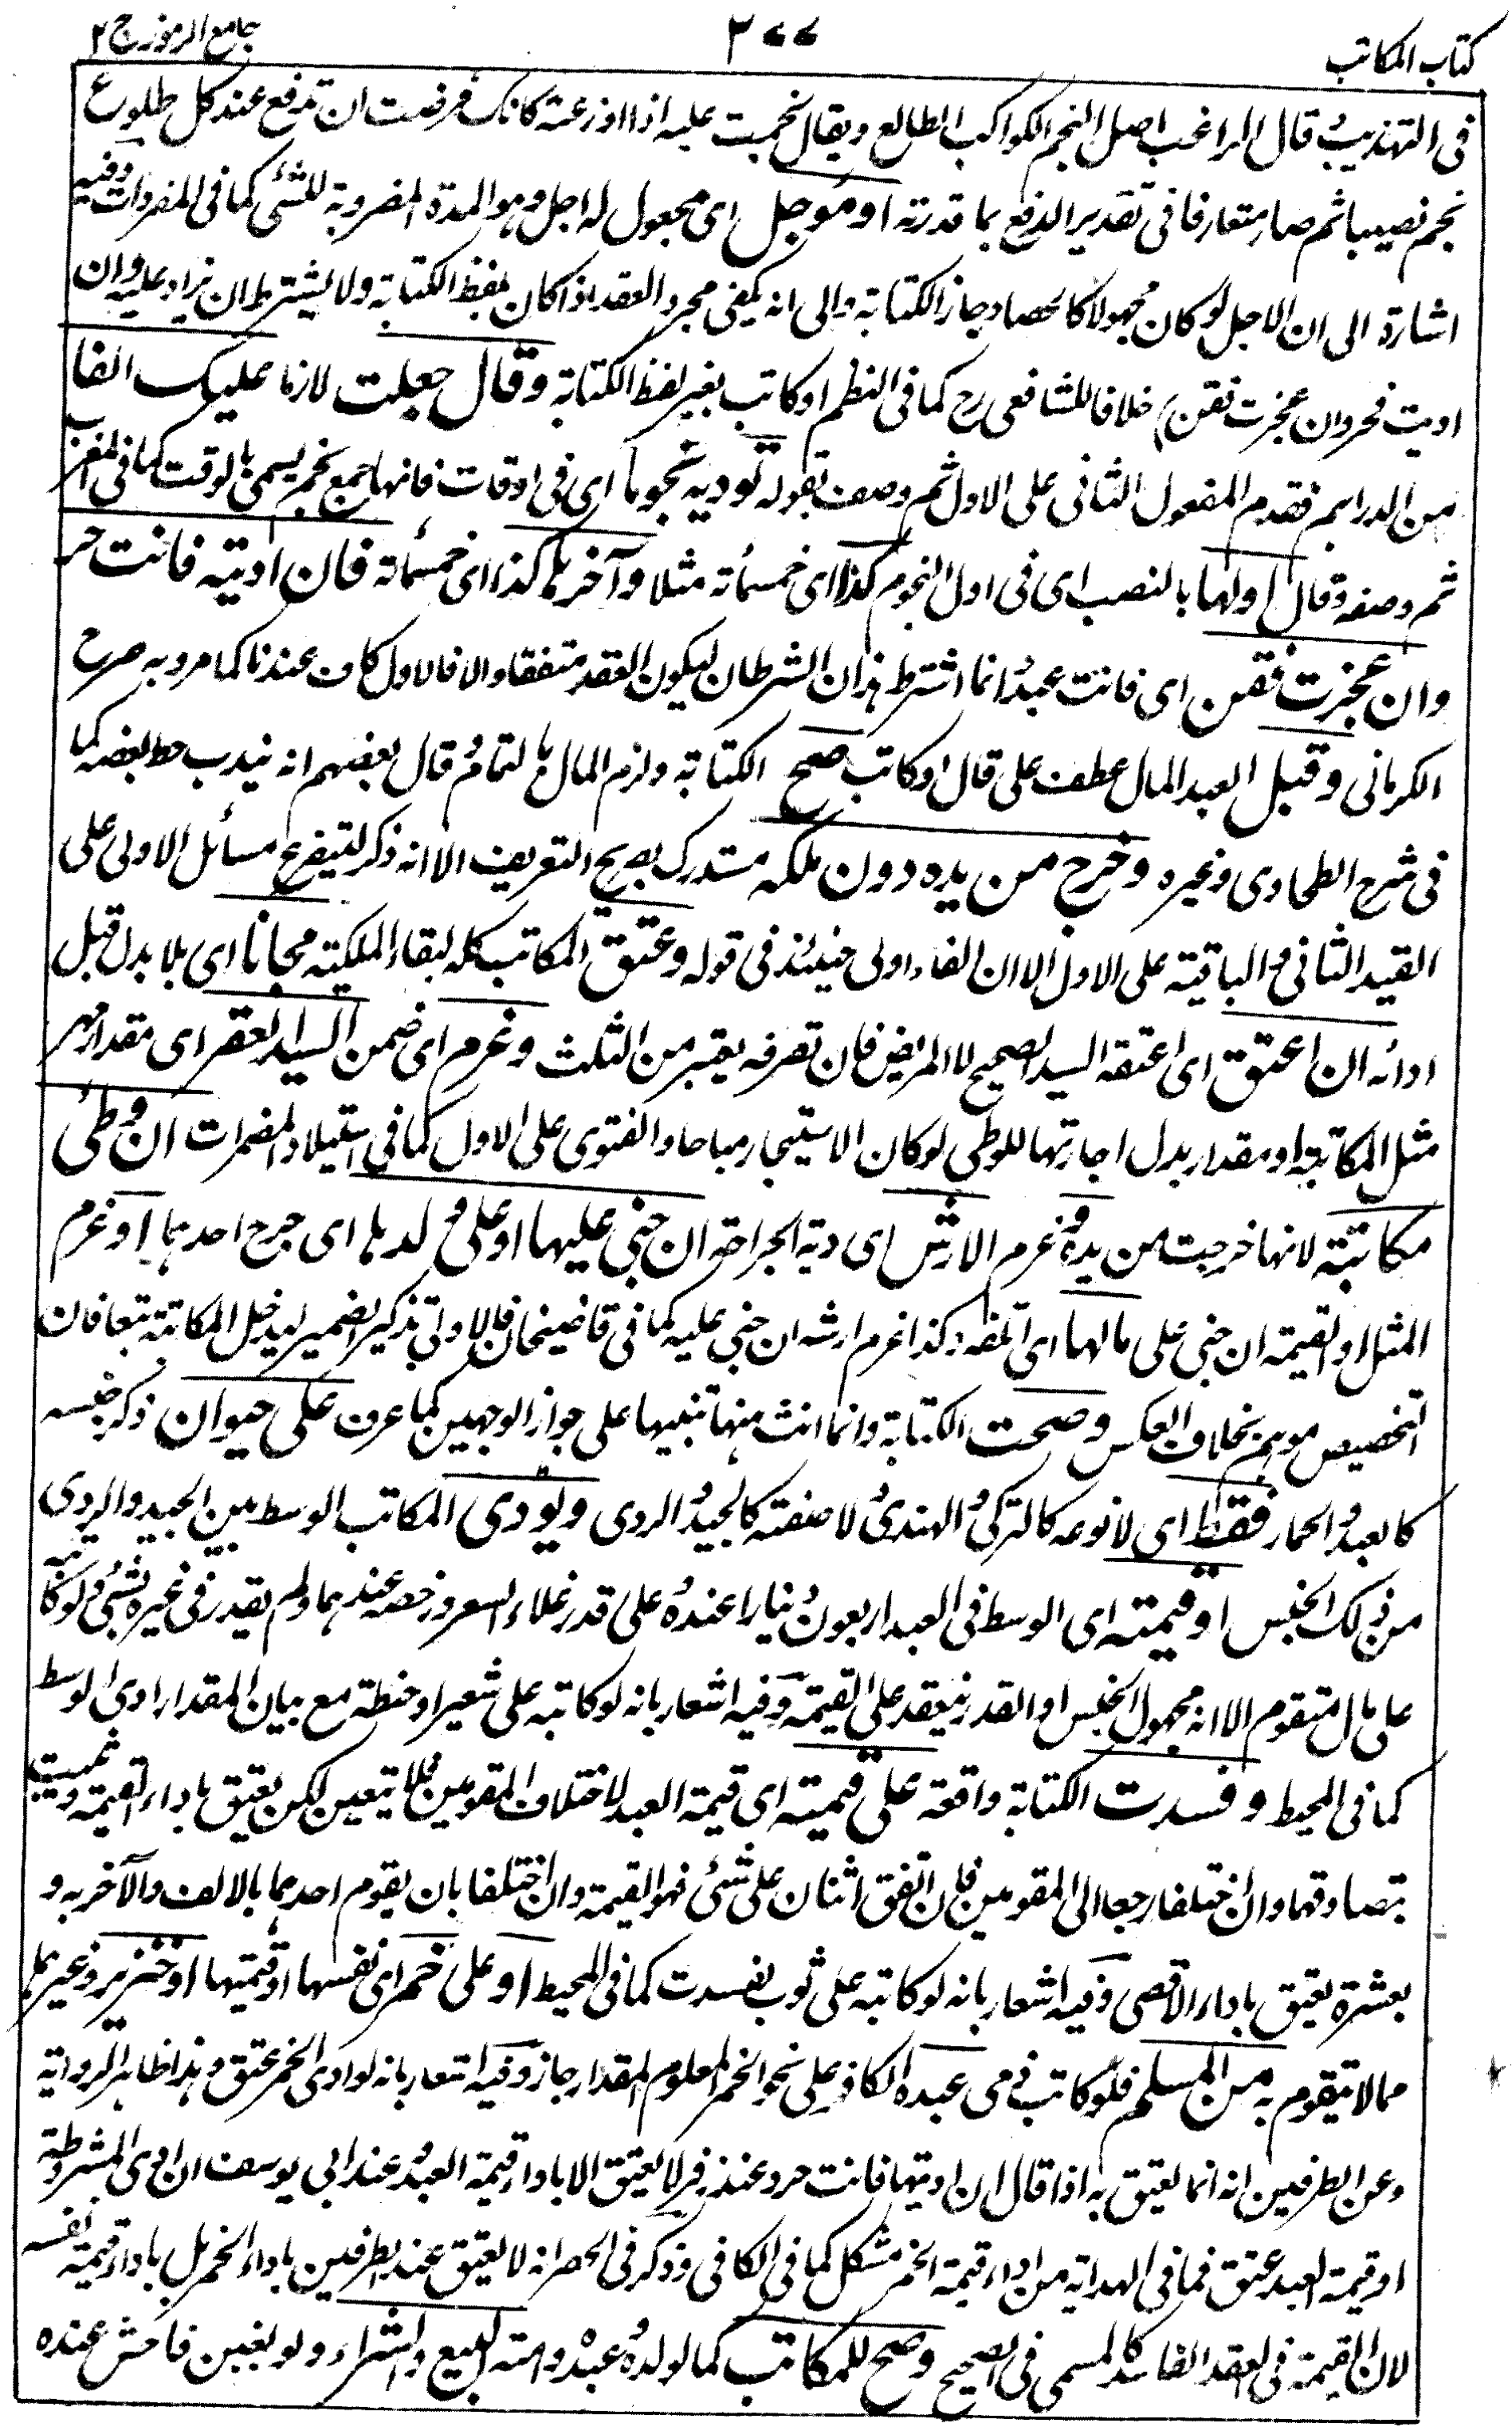 كتاب المكاتب
٣٧٧
جامع الرموز ج ٢
فى التهذيب قال الراغب اصل النجم الكواكب الطالع ويقال نجمت عليه اذا اوزعته كانك فرضت ان تدفع عند كل طلوع
نجم نصيبا ثم صار متعارفا فى تقدير الدفع بما قدرته او مؤجل اى مجعول له اجل وهو المدة المضروبة للشئ كما فى المفردات وفيه
اشارة الى ان الاجل لو كان مجهولا كالحصاد جاز الكتابة والى انه يكفى مجرد العقد اذا كان بلفظ الكتابة ولا يشترط ان يزاد عليه وان
اديت فحر وان عجزت فقن خلافا للشافعى رح كما فى النظم او كاتب بغير لفظ الكتابة وقال جعلت لازما عليك الفا
من الدراهم فقدم المفعول الثانى على الاول ثم وصف بقوله تؤديه نجوما اى فى اوقات فانها جمع نجم يسمى بالوقت كما فى المغرب
ثم وصفه وقال اولها بالنصب اى فى اول النجوم كذا اى خمسمائة مثلا وآخرها كذا اى خمسمائة فان اديته فانت حر
وان عجزت فقن اى فانت عبد وانما اشترط هذان الشرطان ليكون العقد متفقا والا فالاول كاف عندنا كما مر وبه صرح
الكرمانى وقبل العبد المال عطف على قال او كاتب صح الكتابة ولزم المال بالتمام وقال بعضهم انه يندب حط بعضه كما
فى شرح الطحاوى وغيره وخرج من يده دون ملكه مستدرك بصريح التعريف الا انه ذكر لتفريع مسائل الاولى على
القيد الثانى والباقية على الاول الا ان الفاء اولى حينئذ فى قوله وعتق المكاتب كله لبقاء الملكية مجانا اى بلا بدل قبل
ادائه ان اعتق اى اعتقه السيد الصحيح لا المريض فان تصرفه يعتبر من الثلث وغرم اى ضمن السيد العقر اى مقدار مهر
مثل المكاتبة او مقدار بدل اجارتها للوطى لو كان الاستيجار مباحا والفتوى على الاول كما فى استيلاد المضمرات ان وطئ
مكاتبته لانها خرجت من يده وغرم الارش اى دية الجراحة ان جنى عليها او على ولدها اى جرح احدهما او غرم
المثل او القيمة ان جنى على مالها اى اتلفه وكذا غرم ارشه ان جنى عليه كما فى قاضيخان فالاولى تذكير الضمير ليدخل المكاتبة تبعا فان
التخصيص موهم بخلاف العكس وصحت الكتابة وانما انث منها تنبيها على جواز الوجهين كما عرف على حيوان ذكر جنسه
كالعبد والحمار فقط اى لا نوعه كالتركى والهندى ولا صفته كالجيد والردى ويؤدى المكاتب الوسط بين الجيد والردى
من ذلك الجنس او قيمته اى الوسط فى العبد اربعون دينارا عنده وعلى قدر غلاء السعر ورخصه عندهما ولم يقدر فى غيره بشئ ولو كاتبه
على مال متقوم الا انه مجهول الجنس او القدر ينعقد على القيمة وفيه اشعار بانه لو كاتبه على شعير او حنطة مع بيان المقدار ادى الوسط
كما فى المحيط وفسدت الكتابة واقعة على قيمته اى قيمة العبد لاختلاف المقومين فلا يتعين لكن يعتق باداء القيمة وتثبت
بتصادقهما وان اختلفا رجعا الى المقومين فان اتفق اثنان على شئ فهو القيمة وان اختلفا بان يقوم احدهما بالالف والآخر به و
بعشرة يعتق باداء الاقصى وفيه اشعار بانه لو كاتبه على ثوب يفسدت كما فى المحيط او على خمر اى نفسها او قيمتها او خنزير وغيرها
مما لا يتقوم به من المسلم فلو كاتب ذمى عبده الكافر على نحو الخمر المعلوم المقدار جاز وفيه اشعار بانه لو ادى الخمر عتق وهذا ظاهر الرواية
وعن الطرفين انه انما يعتق به اذا قال ان اديتها فانت حر وعند زفر لا يعتق الا باداء قيمة العبد وعند ابى يوسف ان ادى المشروطة
او قيمة العبد عتق فما فى الهداية من اداء قيمة الخمر مشكل كما فى الكافى وذكر فى الحصر انه لا يعتق عند الطرفين باداء الخمر بل باداء قيمة نفسه
لان القيمة فى العقد الفاسد كالمسمى فى الصحيح وصح للمكاتب كما لولده وعبده وامته البيع والشراء ولو بغبن فاحش عنده